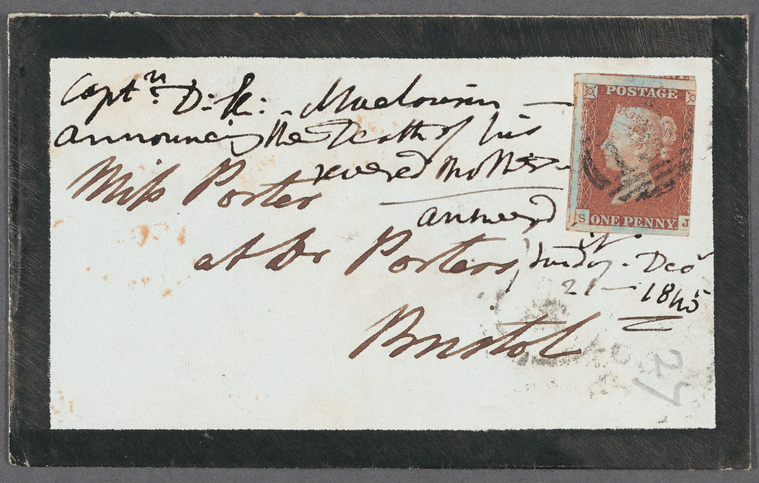 Captn. D: K: - Macdowin
announcing the Death of his
revered Mother
Miss Porter
answerd it.
at Dr Porters
Sunday. Decr
21 - 1845
Bristol
POSTAGE
S ONE PENNY J
27